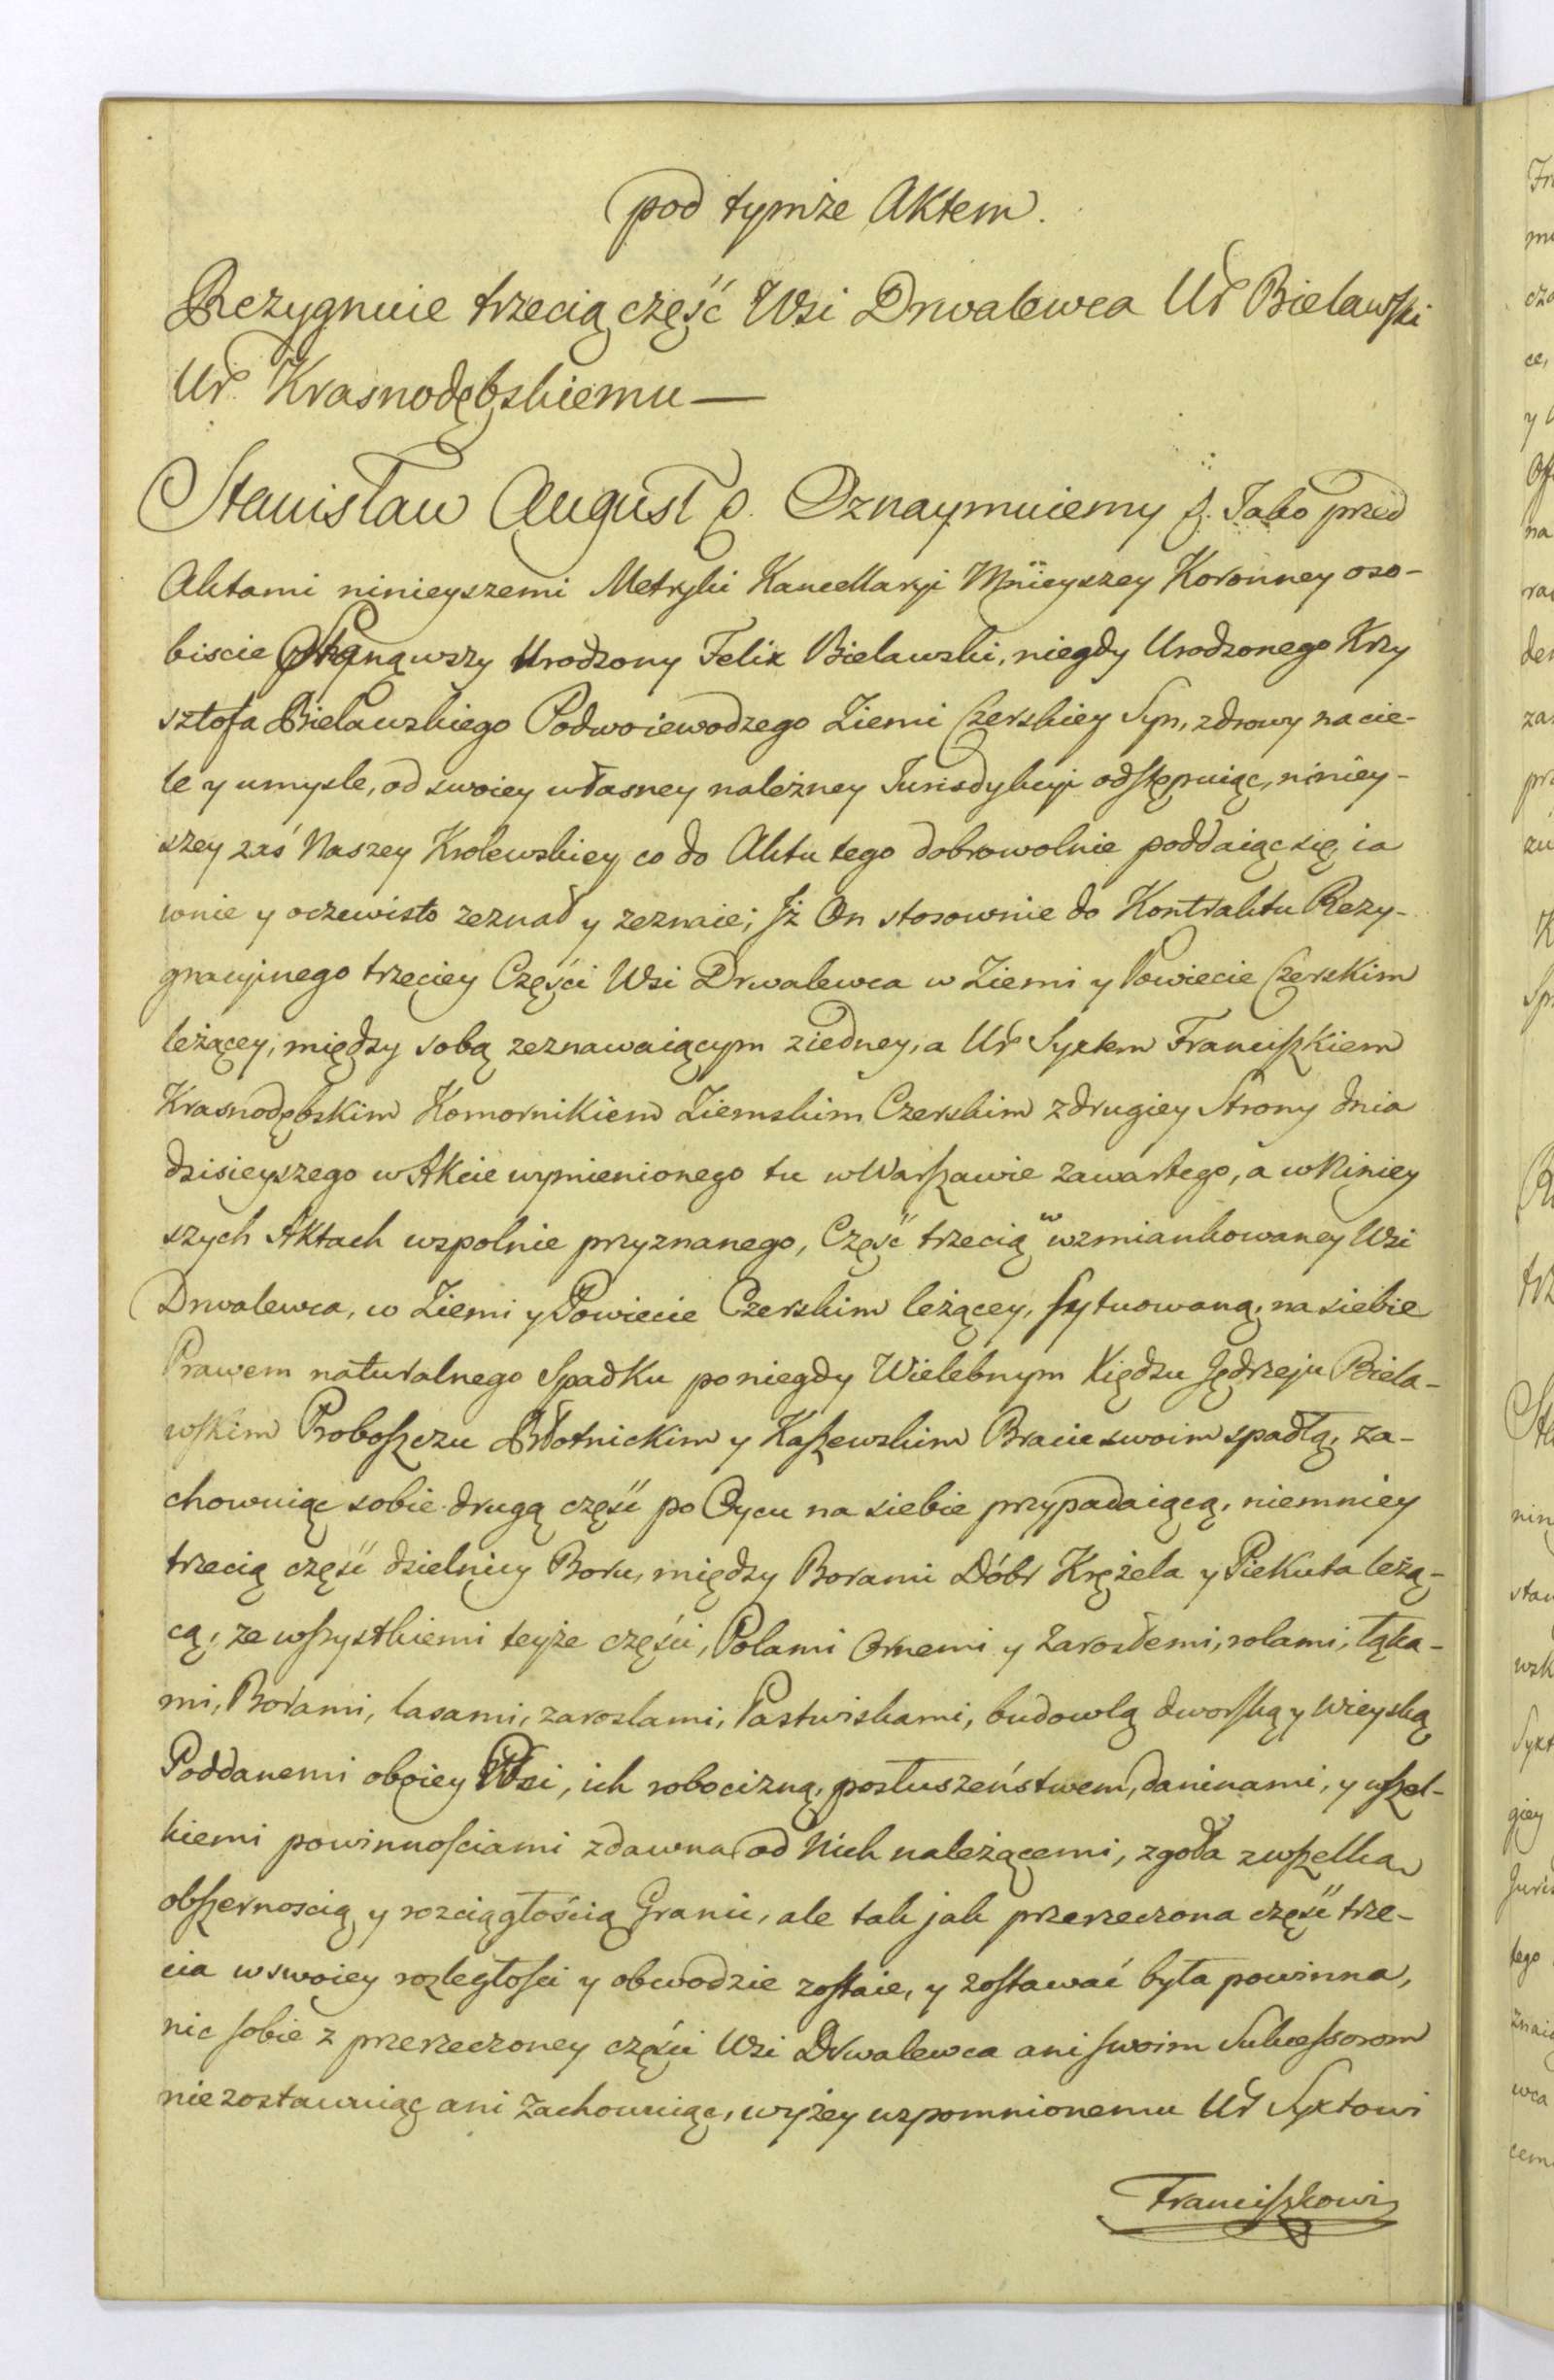 pod tymże Aktem.
Rezygnuie trzecią część Wsi Drwalewca Ur Bielawski
Ur. Krasnodębskiemu —
Stanisław August &. Oznaymuiemy &. Jako przed
Aktami ninieyszemi Metryki Kancellaryi Mnieyszey Koronney oso-
biscie Stanąwszy Urodzony Felix Bielawski, niegdy Urodzonego Krzy
sztofa Bielawskiego Podwoiewodzego Ziemi Czerskiey Syn, zdrowy na cie-
le y umysle, od swoiey własney należney Jurisdykcyi odstępuiąc, niniey-
szey zaś Naszey Krolewskiey co do Aktu tego dobrowolnie poddaiąc się ia
wnie y oczewisto zeznał y zeznaie; Jż On stosownie do Kontraktu Rezy-
gnacyinego trzeciey Części Wsi Drwalewca w Ziemi y Powiecie Czerskim
leżącey, między sobą zeznawaiącym z iedney, a Ur Syxtem Franciszkiem
Krasnodębskim Komornikiem Ziemskim Czerskim z drugiey Strony dnia
dzisieyszego w Akcie wymienionego tu w Warszawie zawartego, a w Niniey
szych Aktach wspolnie przyznanego, Część trzecią w wzmiankowaney Wsi
Drwalewca, w Ziemi y Powiecie Czerskim leżącey, sytuowaną, na siebie
Prawem naturalnego Spadku po niegdy Wielebnym Xiędzu Jędrzeju Biela-
wskim Proboszczu Błotnickim y Kaszewskim Bracie swoim spadłą, za-
chowuiąc sobie drugą część po Oycu na siebie przypadaiącą, niemniey
trzecią część dzielnicy Boru, między Borami Dóbr Krężela y Piekuta leżą-
cą, ze wszystkiemi teyże części, Polami Ornemi y Zarosłemi, rolami, łąka-
mi, Borami, lasami, zaroslami, Pastwiskami, budowlą dworską y wieyską
Poddanemi oboiey Płci, ich robocizną, posłuszeństwem, daninami, y wszel-
kiemi powinnościami zdawna od Nich należącemi, zgoła z wszelką
obszernoscią y rozciągłością Granic, ale tak jak przerzeczona część trze-
cia w swoiey rozległości y obwodzie zostaie, y zostawać była powinna,
nic sobie z przerzeczoney części Wsi Drwalewca ani swoim Sukcessorom
nie zostawuiąc ani zachowuiąc, wyżey wspomnionemu Ur Syxtowi
Franciszkowi